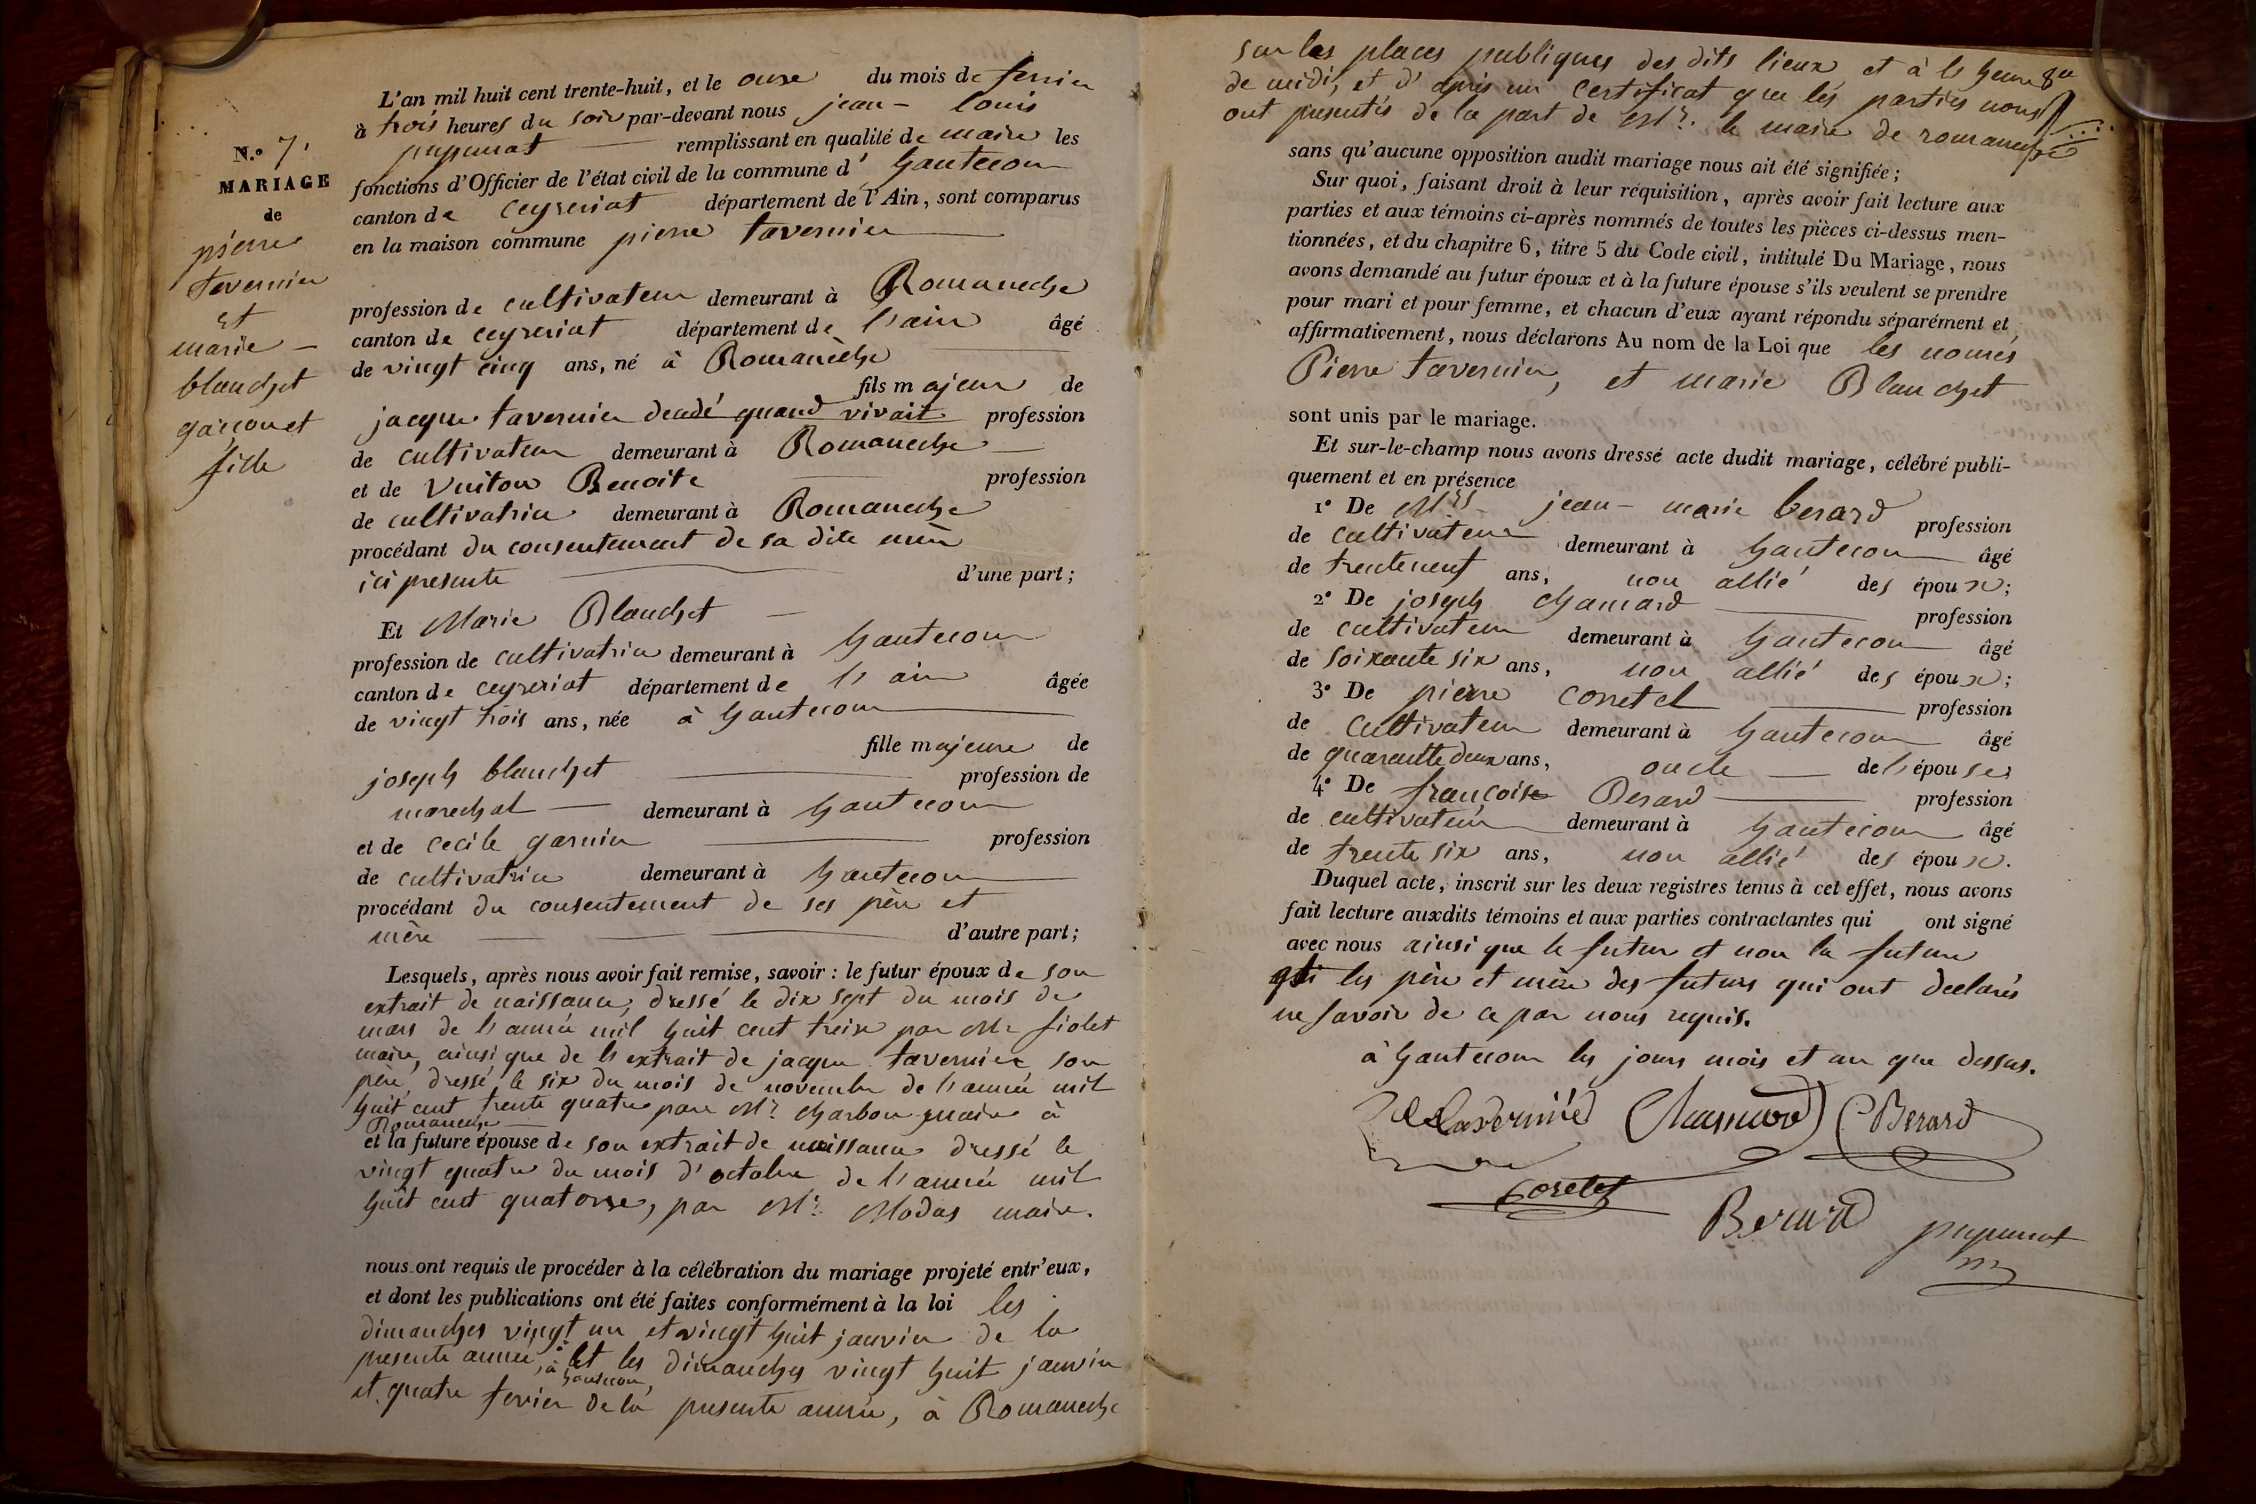 L'an mil huit cent trente-huit, et le onze du mois de fevrier
à trois heures du soir par-devant nous jean-louis
pupunat remplissant en qualité de maire les
fonctions d'Officier de l'état civil de la commune d' hautecour
canton de ceyzeriat département de l'Ain, sont comparus
en la maison commune pierre tavernier
N.° 7.
MARIAGE
de
pierre
tavernier
et
marie
blanchet
garçon et
fille
profession de cultivateur demeurant à Romaneche
canton de ceyzeriat département de l'ain âgé
de vingt cinq ans, né à Romanèche
fils majeur de
jacque tavernier decedé quand vivait profession
de cultivateur demeurant à Romaneche
et de Vuiton Benoite profession
de cultivatrice demeurant à Romaneche
procédant du consentement de sa dite mère
ici presente d'une part;
Et Marie Blanchet
profession de cultivatrice demeurant à hautecour
canton de ceyzeriat département de l'ain âgée
de vingt trois ans, née à hautecour
fille majeure de
joseph blanchet profession de
marechal demeurant à hautecour
et de cecile garnier profession
de cultivatrice demeurant à hautecour
procédant du consentement de ses père et
mère d'autre part;
Lesquels, après nous avoir fait remise, savoir: le futur époux de son
extrait de naissance, dressé le dix sept du mois de
mars de l'année mil huit cent treize par Mr fiolet
maire, ainsi que de l'extrait de jacque tavernier son
père, dressé le six du mois de novembre de l'année mil
huit cent trente quatre par Mr charbon maire à
Romaneche
et la future épouse de son extrait de naissance dressé le
vingt quatre du mois d'octobre de l'année mil
huit cent quatorze, par Mr Modas maire.
nous ont requis de procéder à la célébration du mariage projeté entr'eux,
et dont les publications ont été faites conformément à la loi les
dimanches vingt un et vingt huit janvier de la
presente année, à hautecour, et les dimanches vingt huit janvier
et quatre fevrier de la presente année, à Romaneche
sur les places publiques des dits lieux et à l'heure
de midi, et d'après un certificat que les parties nous
ont presentés de la part de Mr. le maire de romaneche
sans qu'aucune opposition audit mariage nous ait été signifiée;
Sur quoi, faisant droit à leur réquisition, après avoir fait lecture aux
parties et aux témoins ci-après nommés de toutes les pièces ci-dessus men-
tionnées, et du chapitre 6, titre 5 du Code civil, intitulé Du Mariage, nous
avons demandé au futur époux et à la future épouse s'ils veulent se prendre
pour mari et pour femme, et chacun d'eux ayant répondu séparément et
affirmativement, nous déclarons Au nom de la Loi que les només
Pierre tavernier, et marie Blanchet
sont unis par le mariage.
Et sur-le-champ nous avons dressé acte dudit mariage, célébré publi-
quement et en présence
1° De Mrs jean-marie berard profession
de cultivateur demeurant à hautecour âgé
de trenteneuf ans, non allié des époux;
2° De joseph chanard profession
de cultivateur demeurant à hautecour âgé
de soixante six ans, non allié des époux;
3° De pierre corretel profession
de cultivateur demeurant à hautecour âgé
de quarante deux ans, oncle de l'épouse
4° De françois Berard profession
de cultivateur demeurant à hautecour âgé
de trente six ans, non allié des époux.
Duquel acte, inscrit sur les deux registres tenus à cet effet, nous avons
fait lecture auxdits témoins et aux parties contractantes qui ont signé
avec nous ainsi que le futur et non la future
les père et mère des futurs qui ont declarés
ne savoir de ce par nous requis.
à hautecour les jours mois et an que dessus.
Berard
Berard
pupunat